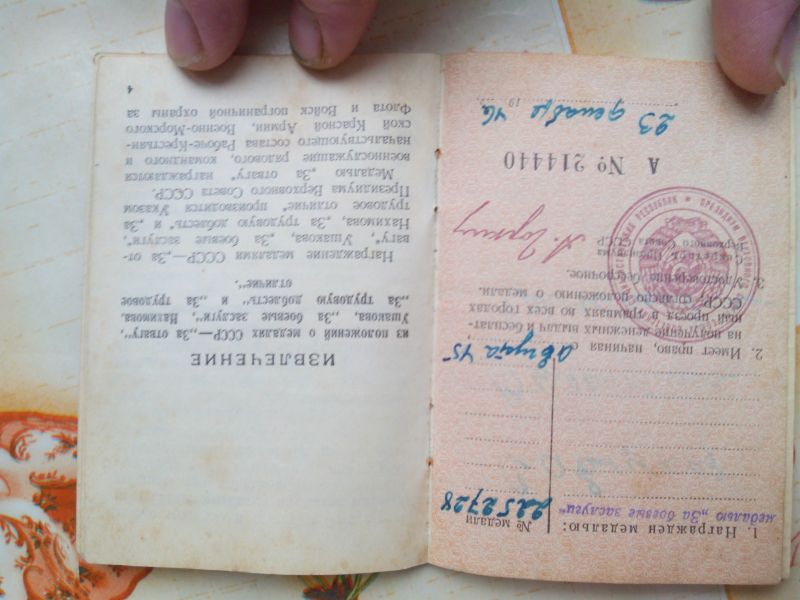 1. Награжден медалью:
№ медали
медалью „За боевые заслуги“
2252728
2. Имеет право, начиная с августа 45
на получение денежных выдач и бесплат-
ный проезд в трамваях во всех городах
СССР, согласно положению о медали.
3. Удостоверение бессрочное.
Секретарь Президиума
Верховного Совета СССР
А. Горкин
А № 214440
23 декабря 46
19
ИЗВЛЕЧЕНИЕ
из положений о медалях СССР—„За отвагу“,
Ушакова, „За боевые заслуги“, Нахимова,
„За трудовую доблесть“ и „За трудовое
отличие“.
Награждение медалями СССР—„За от-
вагу“, Ушакова, „За боевые заслуги“,
Нахимова, „За трудовую доблесть“ и „За
трудовое отличие“ производится Указом
Президиума Верховного Совета СССР.
Медалью „За отвагу“ награждаются
военнослужащие рядового, командного и
начальствующего состава Рабоче-Крестьян-
ской Красной Армии, Военно-Морского
Флота и Войск пограничной охраны за
4